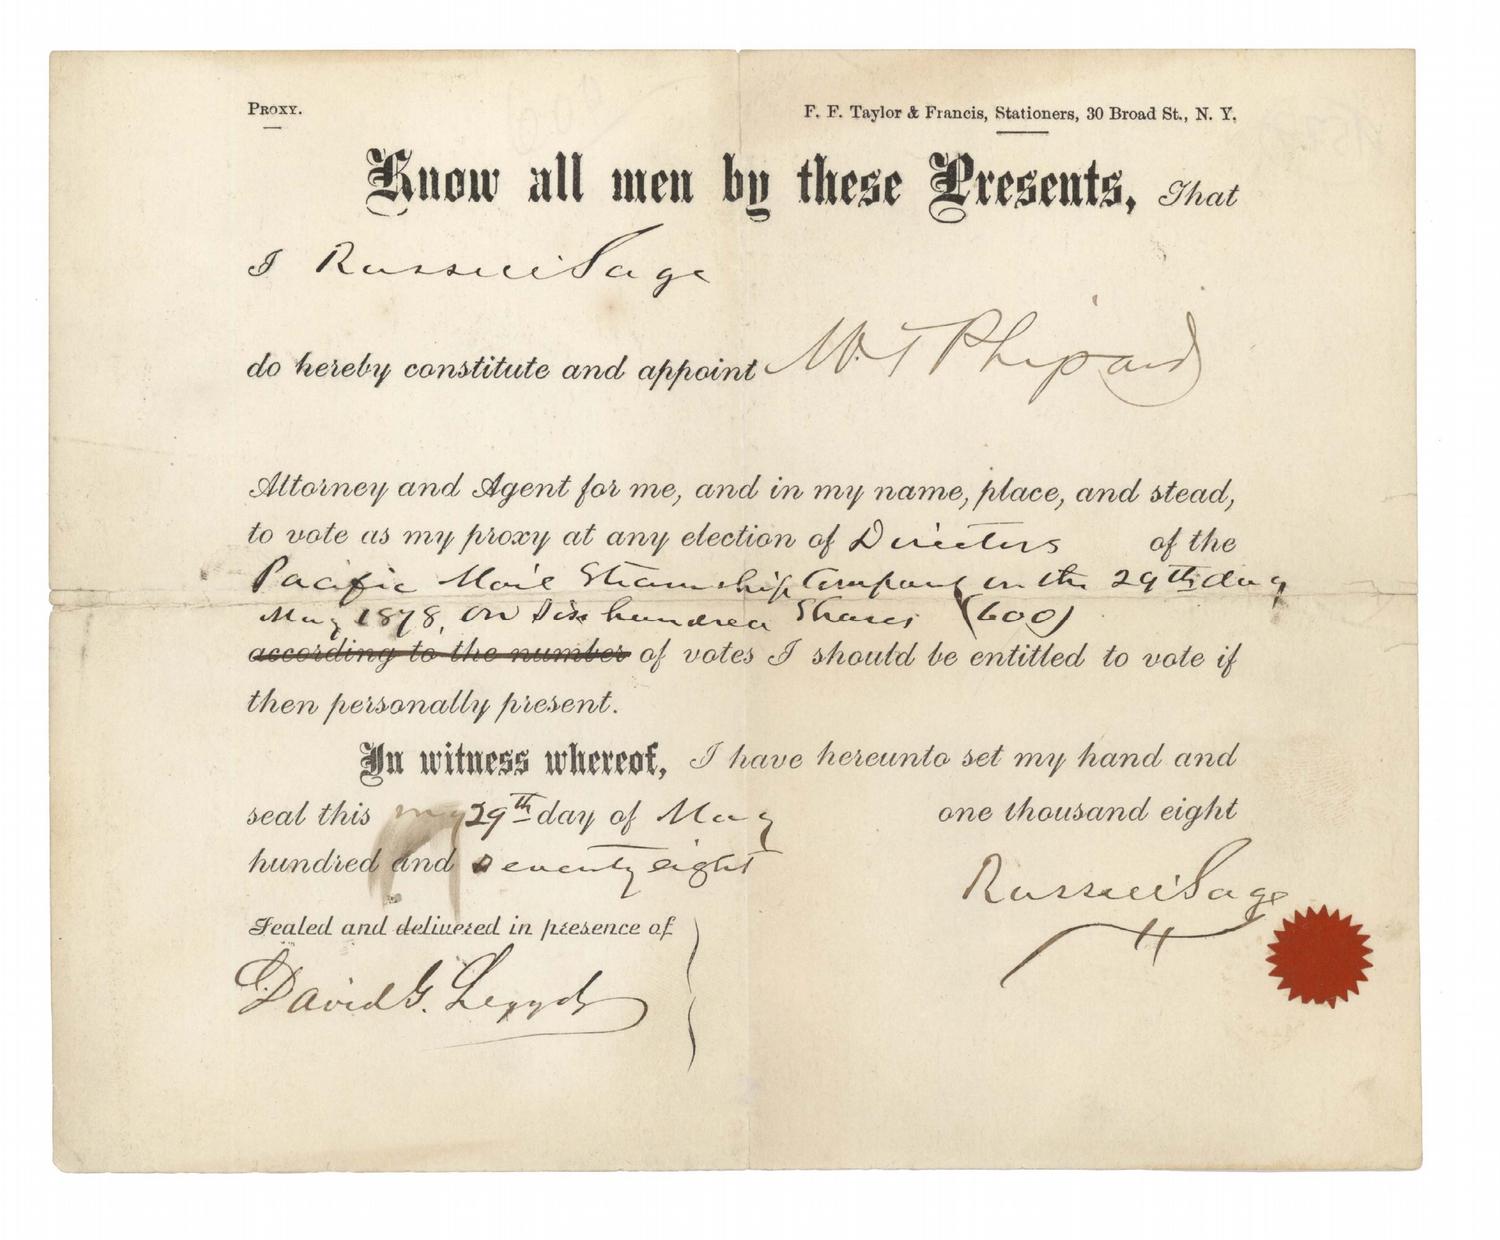 PROXY.
F. F. Taylor & Francis, Stationers, 30 Broad St., N. Y.
Know all men by these Presents, That
I Russell Sage
do hereby constitute and appoint W. T Phipard
Attorney and Agent for me, and in my name, place, and stead,
to vote as my proxy at any election of Directors of the
Pacific Mail Steamship Company on the 29th day
May 1878, on Six hundred Shares (600)
according to the number of votes I should be entitled to vote if
then personally present.
In witness whereof, I have hereunto set my hand and
seal this 29th day of May one thousand eight
hundred and seventy eight
Russell Sage
Sealed and delivered in presence of
David G.